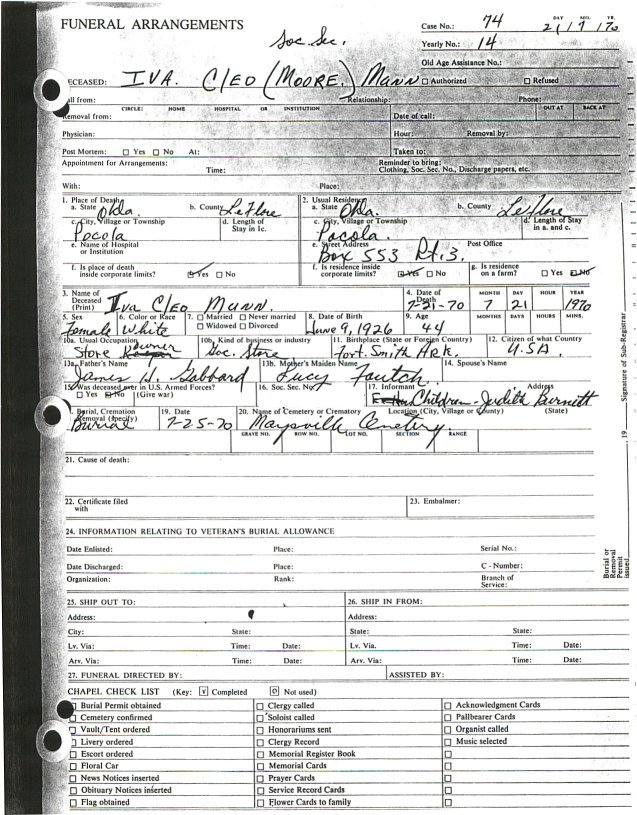 FUNERAL ARRANGEMENTS
Soc. Sec.
Case No.: 74
DAY MO. YR.
21 7 70
Yearly No.: 14
Old Age Assistance No.:
DECEASED: IVA. Cleo (Moore.) Munn □ Authorized □ Refused
Call from: Relationship: Phone:
CIRCLE: HOME HOSPITAL OR INSTITUTION OUT AT BACK AT
Removal from: Date of call:
Physician: Hour: Removal by:
Post Mortem: □ Yes □ No At: Taken to:
Appointment for Arrangements: Time: Reminder to bring:
Clothing, Soc. Sec. No., Discharge papers, etc.
With: Place:
1. Place of Death 2. Usual Residence
a. State Okla. b. County LeFlore a. State Okla. b. County LeFlore
c. City, Village or Township d. Length of Stay in 1c. c. City, Village or Township d. Length of Stay in a. and c.
Pocola Pocola.
e. Name of Hospital or Institution e. Street Address Post Office
Box 553 Rt. 3.
f. Is place of death inside corporate limits? ☑ Yes □ No f. Is residence inside corporate limits? ☑ Yes □ No g. Is residence on a farm? □ Yes ☑ No
3. Name of Deceased (Print) Iva Cleo Munn. 4. Date of Death 7-21-70 MONTH 7 DAY 21 HOUR YEAR 1970
5. Sex 6. Color or Race 7. □ Married □ Never married □ Widowed □ Divorced 8. Date of Birth 9. Age MONTHS DAYS HOURS MINS.
Female White June 9, 1926 44
10a. Usual Occupation 10b. Kind of business or industry 11. Birthplace (State or Foreign Country) 12. Citizen of what Country
Store owner Groc. Store Fort. Smith ARK. U.S.A.
13a. Father's Name 13b. Mother's Maiden Name 14. Spouse's Name
James H. Gabbard Lucy Foutch
15. Was deceased ever in U.S. Armed Forces? □ Yes □ No (Give war) 16. Soc. Sec. No. 17. Informant Address
Children - Judith Burnett
18. Burial, Cremation Removal (Specify) 19. Date 20. Name of Cemetery or Crematory Location (City, Village or County) (State)
Burial 7-25-70 Maysville Cemetery.
GRAVE NO. ROW NO. LOT NO. SECTION RANGE
21. Cause of death:
22. Certificate filed with 23. Embalmer:
24. INFORMATION RELATING TO VETERAN'S BURIAL ALLOWANCE
Date Enlisted: Place: Serial No.:
Date Discharged: Place: C - Number:
Organization: Rank: Branch of Service:
25. SHIP OUT TO: 26. SHIP IN FROM:
Address: Address:
City: State: State: State:
Lv. Via: Time: Date: Lv. Via. Time: Date:
Arv. Via: Time: Date: Arv. Via: Time: Date:
27. FUNERAL DIRECTED BY: ASSISTED BY:
CHAPEL CHECK LIST (Key: ☑ Completed O Not used)
□ Burial Permit obtained □ Clergy called □ Acknowledgment Cards
□ Cemetery confirmed □ Soloist called □ Pallbearer Cards
□ Vault/Tent ordered □ Honorarium sent □ Organist called
□ Livery ordered □ Clergy Record □ Music selected
□ Escort ordered □ Memorial Register Book □
□ Floral Car □ Memorial Cards □
□ News Notices inserted □ Prayer Cards □
□ Obituary Notices inserted □ Service Record Cards □
□ Flag obtained □ Flower Cards to family □
Burial or Removal Permit issued , 19 Signature of Sub-Registrar